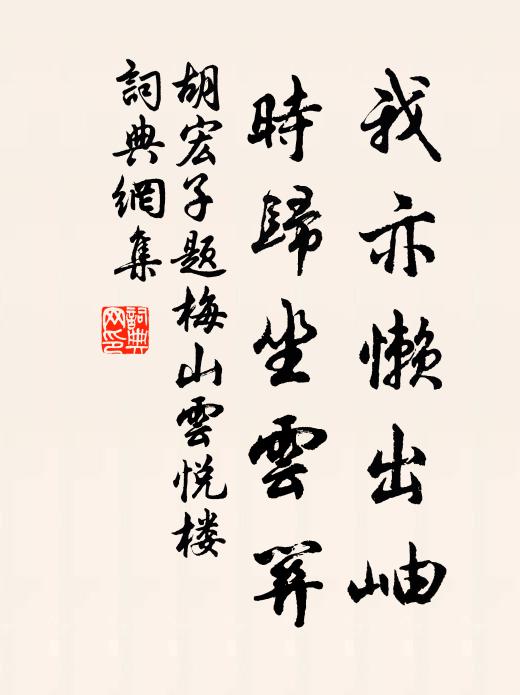 我亦懒出岫
時歸坐雲屏
胡宏子题梅山雲悦楼
詞典網集
詞典网印